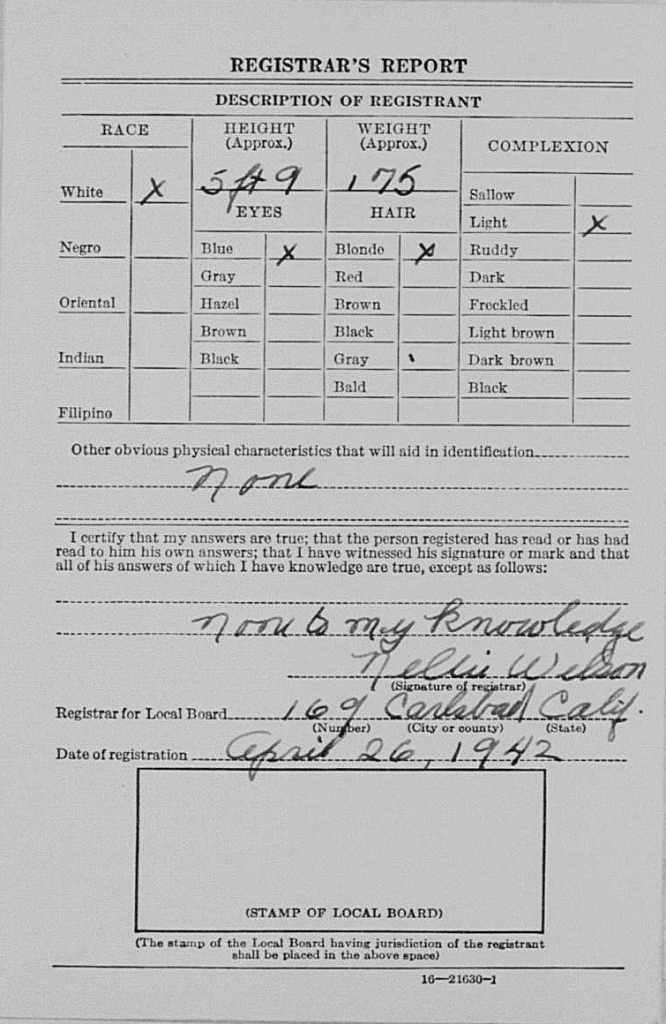 REGISTRAR'S REPORT
DESCRIPTION OF REGISTRANT
RACE
HEIGHT
(Approx.)
WEIGHT
(Approx.)
COMPLEXION
White X
5 ft 9
175
Sallow
EYES
HAIR
Light X
Negro
Blue X
Blonde X
Ruddy
Gray
Red
Dark
Oriental
Hazel
Brown
Freckled
Brown
Black
Light brown
Indian
Black
Gray
Dark brown
Bald
Black
Filipino
Other obvious physical characteristics that will aid in identification
None
I certify that my answers are true; that the person registered has read or has had
read to him his own answers; that I have witnessed his signature or mark and that
all of his answers of which I have knowledge are true, except as follows:
None to my knowledge
Nellie Wilson
(Signature of registrar)
Registrar for Local Board 169 Carlsbad Calif.
(Number) (City or county) (State)
Date of registration April 26, 1942
(STAMP OF LOCAL BOARD)
(The stamp of the Local Board having jurisdiction of the registrant
shall be placed in the above space)
16—21630-1